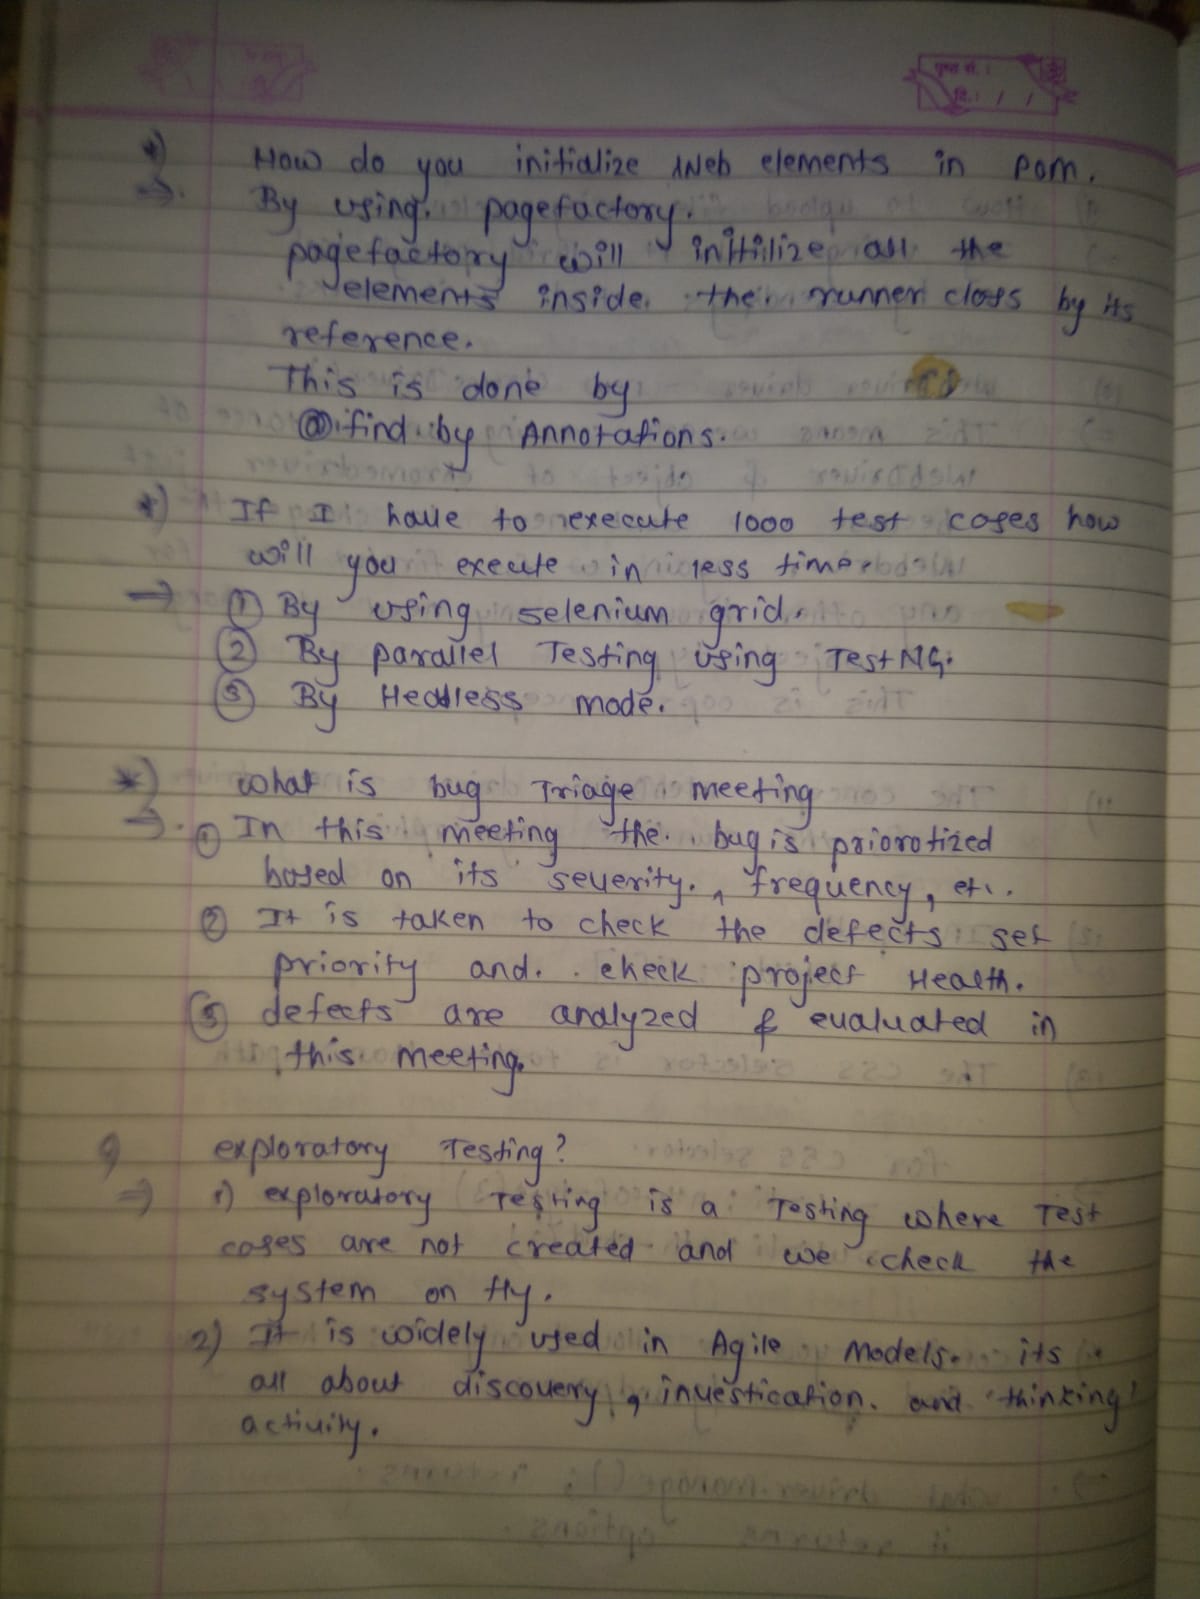 पृष्ठ सं. :
दि. : / /
*) How do you initialize Web elements in Pom.
⇒. By using. pagefactory.
pagefactory will inttilize all the
elements inside. the. runner class by its
reference.
This is done by
@ find by Annotations.
*) If I have to execute 1000 test cases how
will you exeute in less time.
⇒ ① By using selenium grid.
② By parallel Testing using TestNG.
③ By Headless mode.
*) what is bug Triage meeting
⇒. ① In this meeting the. bug is priorotized
based on its severity. , frequency, etc.
② It is taken to check the defects set
priority and. check project Health.
③ defects are analyzed & evaluated in
this meeting.
exploratory Testing?
⇒ 1) exploratory Testing is a Testing where Test
cases are not created and we check the
system on fly.
2) It is widely used in Agile Models. its
all about discovery, investication. and 'thinking'
activity.